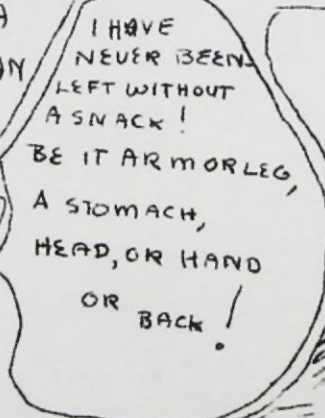 A
ON
I HAVE
NEVER BEEN
LEFT WITHOUT
A SNACK!
BE IT ARM OR LEG,
A STOMACH,
HEAD, OR HAND
OR BACK!